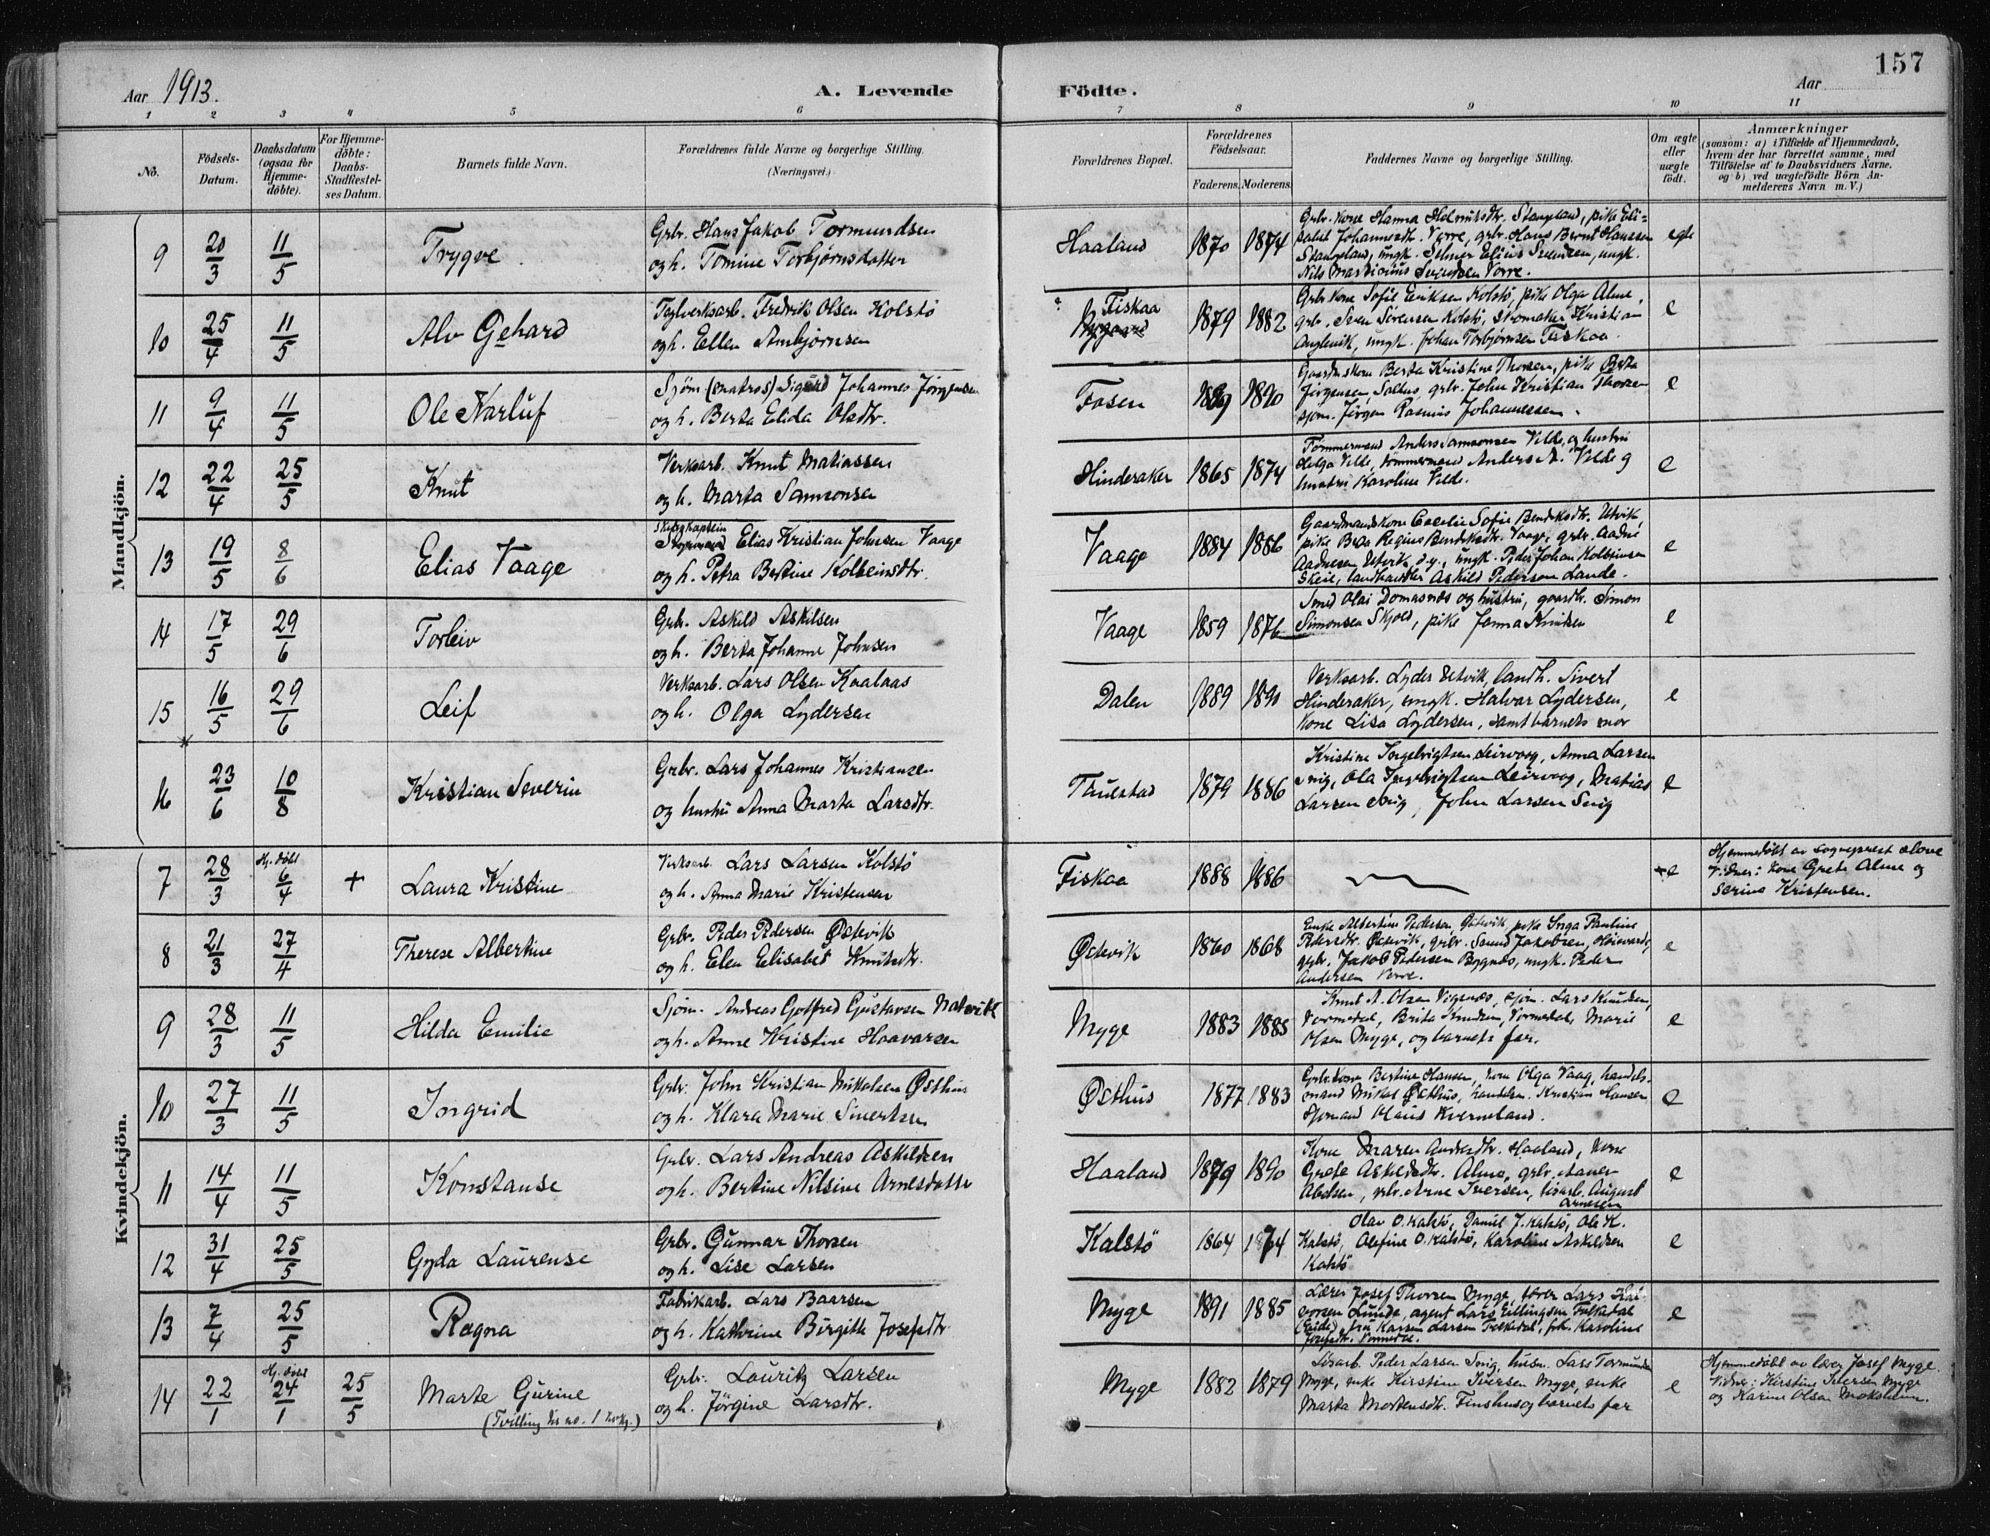 157
Aar 1913.
A. Levende Födte.
Aar
1 2 3 4 5 6 7 8 9 10 11
No.
Födsels-Datum.
Daabsdatum (ogsaa for Hjemme-döbte).
For Hjemme-döbte: Daabs-Stadfæstel-ses Datum.
Barnets fulde Navn.
Forældrenes fulde Navne og borgerlige Stilling. (Næringsvei.)
Forældrenes Bopæl.
Forældrenes Födselsaar.
Faderens. Moderens.
Faddernes Navne og borgerlige Stilling.
Om ægte eller uægte födt.
Anmærkninger
(saasom: a) i Tilfælde af Hjemmedaab, hvem der har forrettet samme, med Tilföielse af to Daabsvidners Navne, og b) ved uægtefödte Börn An-melderens Navn m. V.)
Mandkjön.
9 20/3 11/5 Trygve Grbr. Hans Jakob Tormundsen
og h. Tomine Torbjørnsdatter
Haaland 1870 1874 Grbr. kone Hanna Stangeland, pike Eli-
Johannesdtr. Vorre, grbr. Hans Bernt Hanssen
Stangeland, ungk. Selmer Elius Svendsen, ungk.
Nils Svendsen Vorre.
egte
10 25/4 11/5 Alv Gehard Teglverksarb. Fredrik Olsen Kolstö
og h. Ellen Ambjørnsen
Fiskaa 1879 1882 Grbr. kone Sofie Eriksen Kolstö, pike Olga Alme,
grbr. Sven Sörensen Kolstö, skomaker Kristian
ungk. Johan Torbjørnsen Fiskaa.
e
11 9/4 11/5 Ole Narluf Sjöm. (matros) Sigurd Johannes Jörgensen
og h. Berta Elida Olsdtr.
Fosen 1889 1890 Gaardmskone Berta Kristine Thorsen, pike Berta
Jörgensen, Salhus, grbr. John Kristian Thorsen
sjöm. Jörgen Rasmus Johannessen.
e
12 22/4 25/5 Knut Verksarb. Knut Matiassen
og h. Marta Samsonsen
Hinderaker 1865 1874 Tömmermand Anders Samsonsen Velde, og hustru
Helga Velde, tömmermand Anders A. Velde og
hustru Karoline Velde.
e
13 19/5 8/6 Elias Vaage Skibskaptein Elias Kristian Johnsen Vaage
og h. Petra Bertine Kolbeinsdtr.
Vaage 1884 1886 Gaardmandskone Cecelie Sofie Bendiksdtr. Utvik,
pike Berta Regine Bendiksdtr. Vaage, grbr. Aadne
Aadnesen Utvik, d.y., ungk. Peder Johan Kolbeinsen
Skeie, landhandler Askild Pedersen Lande.
e
14 17/5 29/6 Torleiv Grbr. Askild Askilsen
og h. Berta Johanne Johnsen
Vaage 1859 1876 Smed Olai Domasnes og hustru, gaardbr. Simon
Simonsen Skjold, pike Jenna Knutsen
e
15 16/5 29/6 Leif Verksarb. Lars Olsen Kaalaas
og h. Olga Lydersen
Dalen 1889 1890 Verksarb. Lyder Utvik, landh. Sivert
Hinderaker, ungk. Halvar Lydersen,
kone Lisa Lydersen, samt barnets mor
e
16 23/6 10/8 Kristian Severin Grbr. Lars Johannes Kristiansen
og hustru Anna Marta Larsdtr.
1879 1886 Kristine Ingebrigtsen Leirvaag, Anna Larsen
Snig, Ola Ingebrigtsen Leirvaag, Matias
Larsen Snig, John Larsen Snig
e
Kvindekjön.
7 28/3 Hj. döbt 6/4 + Laura Kristine Verksarb. Lars Larsen Kolstö
og h. Anna Marie Kristensen
Fiskaa 1888 1886 e Hjemmedöbt av sogneprest
Vidner: Kone Grete Alme og
Serine Kristensen.
8 21/3 27/4 Therese Albertine Grbr. Peder Pedersen Østevik
og h. Elen Elisabet Knutsdtr.
Østevik 1860 1868 Enke Albertine Pedersen, Østevik, pike Inga Pauline
Pedersdtr. Østevik, grbr. Jakobsen,
grbr. Jakob Pedersen Bygnes, ungk. Peder
Andersen Vorre.
e
9 28/3 11/5 Hilda Emilie Sjöm. Andreas Gotfred Gustavsen
og h. Anne Kristine Haavarsen
Myge 1883 1885 Knut A. Olsen Vigenes, sjöm. Lars Knudsen,
Vormedal, Brita Knudsen, Vormedal, Marie
Olsen Myge, og barnets far.
e
10 27/3 11/5 Ingrid Grbr. John Kristian Mikalsen Østhus
og h. Klara Marie Sivertsen
Østhus 1877 1883 Grbr. kone Bertine Hansen, kone Olga Vaag, handels-
mand Mikal Østhus, handelsm. Kristian Hansen
Sjömand Olaus Kverneland.
e
11 14/4 11/5 Konstanse Grbr. Lars Andreas Askildsen
og h. Bertine Nilsine Arnesdatter
Haaland 1879 1890 Kone Maren Andersdtr. Haaland, kone
Grete Askildsdtr. Alme, grbr.
Abelsen, grbr. Arne Iversen, lösarb. August
Arnesen
e
12 31/4 25/5 Gyda Laurense Grbr. Gunnar Thorsen
og h. Lise Larsen
Kalstö 1864 1874 Olav O. Kalstö, Daniel J. Kalstö, Ole K.
Kalstö, Olefine O. Kalstö, Karoline Askildsen
Kalstö
e
13 7/4 25/5 Ragna Fabrikarb. Lars Baarsen
og h. Kathrine Birgitte Josefsdtr.
Myge 1891 1885 Lærer Josef Thorsen Myge, lærer Lars Hal-
vorsen Lunde, agent Lars Ellingsen Folkedal
(Eide), fru Karen Larsen Folkedal, frk. Karoline
Josefsdtr. Vormedal.
e
14 22/1 Hj. döbt 24/1 25/5 Marte Gurine
(Tvilling til no. 1 )
Grbr. Lauritz Larsen
og h. Jörgine Larsdtr.
Myge 1882 1879 Lösarb. Peder Larsen Snig, husm. Lars Tormundsen
Myge, enke Kirstine Iversen Myge, enke
Marta Mortensdtr. og barnets far
e Hjemmedöbt av lærer Josef Myge
Vidner: Kirstine Iversen Myge
og Karine Olsen Moksheim.